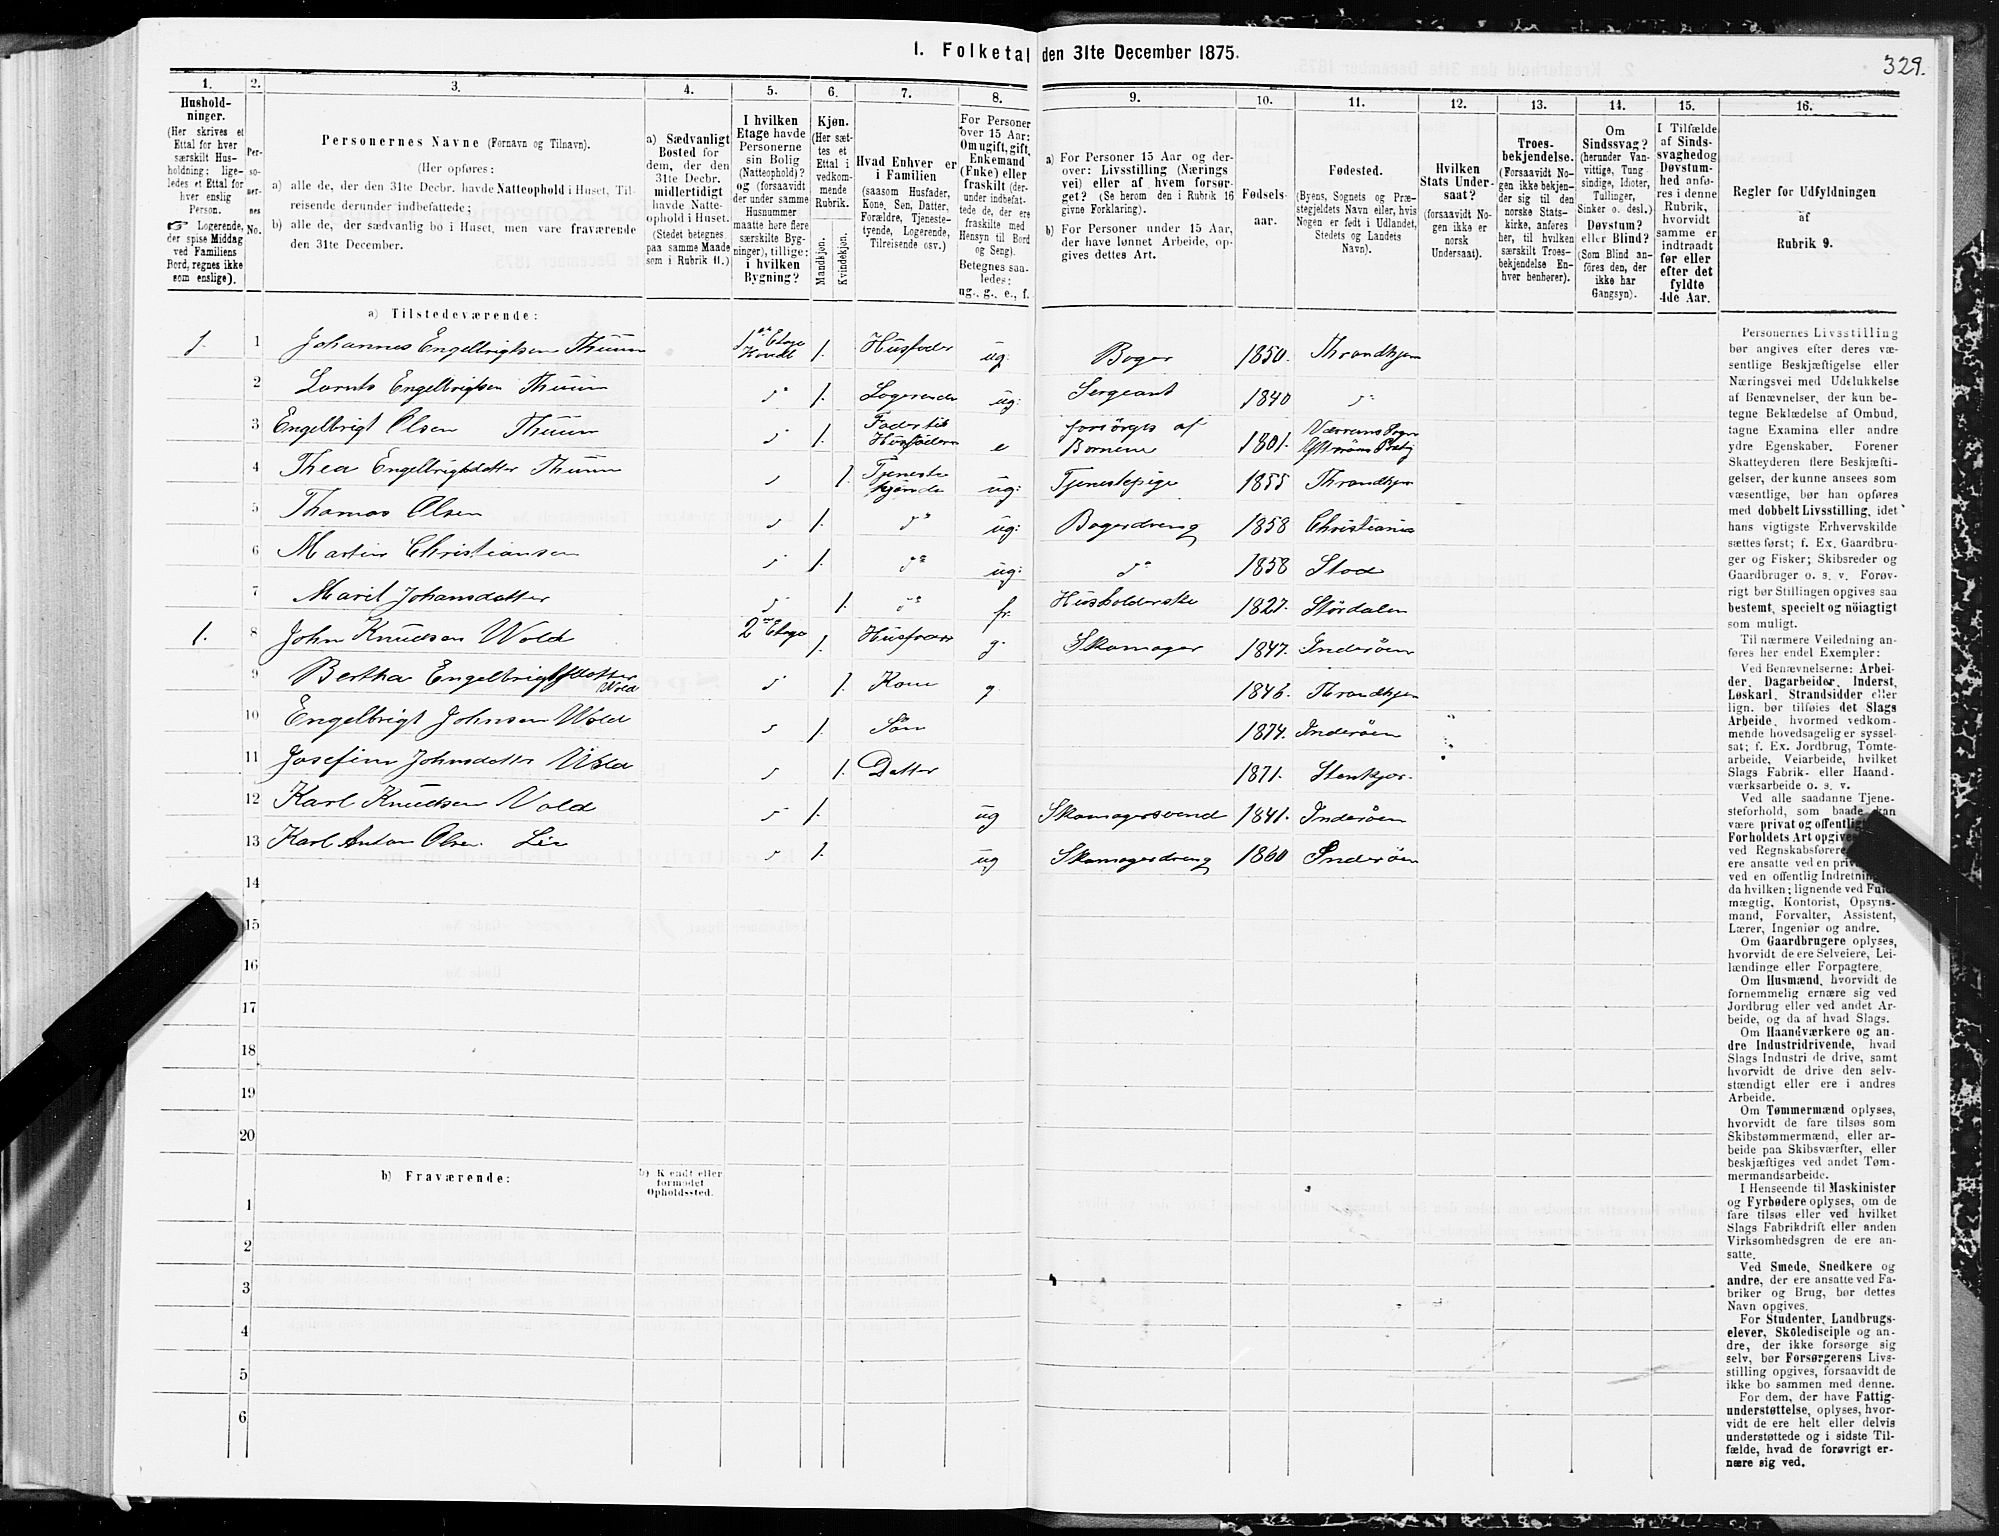 329.
I. Folketal den 31te December 1875.
1. 2. 3. 4. 5. 6. 7. 8. 9. 10. 11. 12. 13. 14. 15. 16.
Hushold-
ninger.
(Her skrives et
Ettal for hver
særskilt Hus-
holdning; lige-
ledes et Ettal for
hver enslig
Person.
☞ Logerende,
der spise Middag
ved Familiens
Bord, regnes ikke
som enslige).
Per-
so-
ner-
nes
No.
Personernes Navne (Fornavn og Tilnavn).
(Her opføres:
a) alle de, der den 31te Decbr. havde Natteophold i Huset, Til-
reisende derunder indbefattede;
b) alle de, der sædvanlig bo i Huset, men vare fraværende
den 31te December.
a) Sædvanligt
Bosted for
dem, der den
31te Decbr.
midlertidigt
havde Natte-
ophold i Huset.
(Stedet betegnes
paa samme Maade
som i Rubrik 11.)
I hvilken
Etage havde
Personerne
sin Bolig
(Natteophold)?
og (forsaavidt
der under samme
Husnummer
maatte høre flere
særskilte Byg-
ninger), tillige:
i hvilken
Bygning?
Kjøn.
(Her sæt-
tes et
Ettal i
vedkom-
mende
Rubrik.
Mandkjøn.
Kvindekjøn.
Hvad Enhver er
i Familien
(saasom Husfader,
Kone, Søn, Datter,
Forældre, Tjeneste-
tyende, Logerende,
Tilreisende osv.)
For Personer
over 15 Aar:
Om ugift, gift,
Enkemand
(Enke) eller
fraskilt (der-
under indbefat-
tede de, der ere
fraskilte med
Hensyn til Bord
og Seng).
Betegnes saa-
ledes:
ug., g., e., f.
a) For Personer 15 Aar og der-
over: Livsstilling (Nærings
vei) eller af hvem forsør-
get? (Se herom den i Rubrik 16
givne Forklaring).
b) For Personer under 15 Aar,
der have lønnet Arbeide, op-
gives dettes Art.
Fødsels-
aar.
Fødested.
(Byens, Sognets og Præ-
stegjeldets Navn eller, hvis
Nogen er født i Udlandet,
Stedets og Landets
Navn).
Hvilken
Stats Under-
saat?
(forsaavidt No-
gen ikke er
norsk
Undersaat).
Troes-
bekjendelse.
(Forsaavidt No-
gen ikke bekjen-
der sig til den
norske Stats-
kirke, anføres
her, til hvilken
særskilt Troes-
bekjendelse En-
hver henhører).
Om
Sindssvag?
(herunder Van-
vittige, Tung
sindige, Idioter,
Tullinger,
Sinker o. desl.)
Døvstum?
eller Blind?
(Som Blind an-
føres den, der
ikke har
Gangsyn).
I Tilfælde
af Sinds-
svaghed og
Døvstum-
hed anfø-
res i denne
Rubrik,
hvorvidt
samme er
indtraadt
før eller
efter det
fyldte
4de Aar.
Regler for Udfyldningen
af
Rubrik 9.
a) Tilstedeværende:
1. 1 Johannes Engelbrigtsen Thuun 1ste Etage 1. Husfader ug. Bager 1850. Throndhjem
2 Lornts Engelbrigtsen Thuun do 1. Logerende ug: Sergeant 1840 do
3 Engelbrigt Olsen Thuun do 1. Fader til Husfaderen e forsørges af Børnene 1801.
4 Thea Engelbrigtsdatter Thuun do 1. Tjeneste ug: Tjenestepige 1855 Throndhjem
5 Thomas Olsen do 1. do ug: Bagerdreng 1858 Christiania
6 Martin Christiansen do 1. do ug: do 1858 Stod
7 Marit Johansdatter do 1. do fr. Husholderske 1827. Størdalen
1. 8 John Knudsen Wold 2den Etage 1. g. Skomager 1847. Inderøen
9 Bertha Engelbrigtsdatter Wold do 1. Kone g. 1846. Throndhjem
10 Engelbrigt Johnsen Wold do 1. Søn 1874. Inderøen
11 Josefine Johnsdatter Wold do 1. Datter 1871. Stenkjær
12 Karl Knudsen Wold do 1. ug Skomagersvend 1841. Inderøen
13 Karl Anton Olsen Lie do 1. ug Skomagerdreng 1860 Inderøen
14
15
16
17
18
19
20
b) Fraværende:
b) Kjendt eller
formodet
Opholdssted.
1
2
3
4
5
6
Personernes Livsstilling
bør angives efter deres væ-
sentlige Beskjæftigelse eller
Næringsvei med Udelukkelse
af Benævnelser, der kun be-
tegne Beklædelse af Ombud,
tagne Examina eller andre
ydre Egenskaber. Forener
Skatteyderen flere Beskjæfti-
gelser, der kunne ansees som
væsentlige, bør han opføres
med dobbelt Livsstilling, idet
hans vigtigste Erhvervskilde
sættes først; f. Ex. Gaardbru-
ger og Fisker; Skibsreder og
Gaardbruger o. s. v. Forøv-
rigt bør Stillingen opgives saa
bestemt, specielt og nöiagtigt
som muligt.
Til nærmere Veiledning an-
føres her endel Exempler:
Ved Benævnelserne: Arbei-
der, Dagarbeider, Inderst,
Løskarl, Strandsidder eller
lign. bør tilføies det Slags
Arbeide, hvormed vedkom-
mende hovedsagelig er syssel-
sat; f. Ex. Jordbrug, Tomte-
arbeide, Veiarbeide, hvilket
Slags Fabrik- eller Haand-
værksarbeide o. s. v.
Ved alle saadanne Tjene-
steforhold, som baade kan
være privat og offentligt
Forholdets Art opgives
ved Regnskabsførere
ere ansatte ved en
ved en offentlig Indretning
da hvilken; lignende ved Fuld-
mægtig, Kontorist, Opsyns-
mand, Forvalter, Assistent,
Lærer, Ingeniør og andre.
Om Gaardbrugere oplyses,
hvorvidt de ere Selveiere, Lei-
lændinge eller Forpagtere.
Om Husmænd, hvorvidt de
fornemmelig ernære sig ved
Jordbrug eller ved andet Ar-
beide, og da af hvad Slags.
Om Haandværkere og an-
dre Industridrivende, hvad
Slags Industri de drive, samt
hvorvidt de drive den selv-
stændigt eller ere i andres
Arbeide.
Om Tømmermænd oplyses,
hvorvidt de fare tilsøs som
Skibstømmermænd, eller ar-
beide paa Skibsværfter, eller
beskjæftiges ved andet Tøm-
mermandsarbeide.
I Henseende til Maskinister
og Fyrbødere oplyses, om de
fare tilsøs eller ved hvilket
Slags Fabrikdrift eller anden
Virksomhedsgren de ere an-
satte.
Ved Smede, Snedkere og
andre, der ere ansatte ved Fa-
briker og Brug, bør dettes
Navn opgives.
For Studenter, Landbrugs-
elever, Skoledisciple og an-
dre, der ikke forsørge sig
selv, bør Forsørgerens Livs-
stilling opgives, forsaavidt de
ikke bo sammen med denne.
For dem, der have Fattig-
understøttelse, oplyses, hvor-
vidt de ere helt eller delvis
understøttede og i sidste Til-
fælde, hvad de forøvrigt er-
nære sig ved.